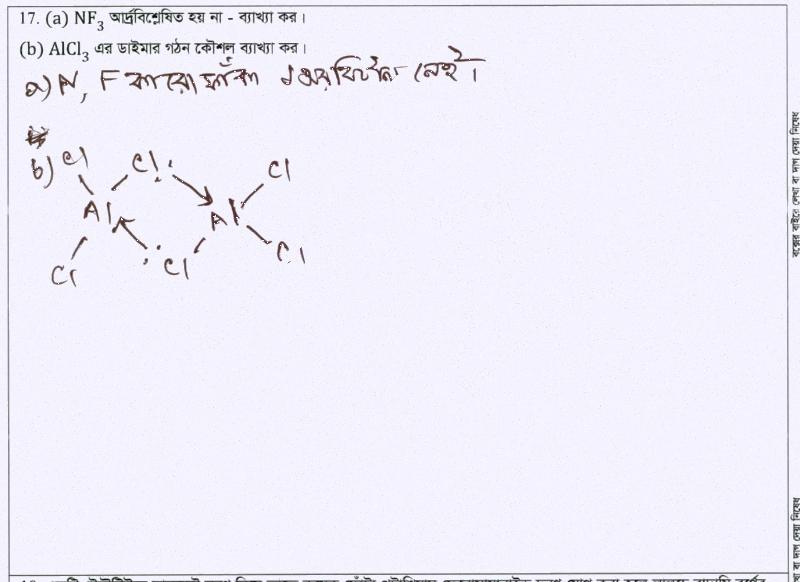 17. (a) NF₃ আর্দ্রবিশ্লেষিত হয় না - ব্যাখ্যা কর।
(b) AlCl₃ এর ডাইমার গঠন কৌশল ব্যাখ্যা কর।
a) N, F কারো ফাঁকা d অরবিটাল নেই।
b) Cl Cl Cl
Al Al
Cl Cl Cl
বক্সের বাইরে লেখা বা দাগ দেয়া নিষেধ
বা দাগ দেয়া নিষেধ